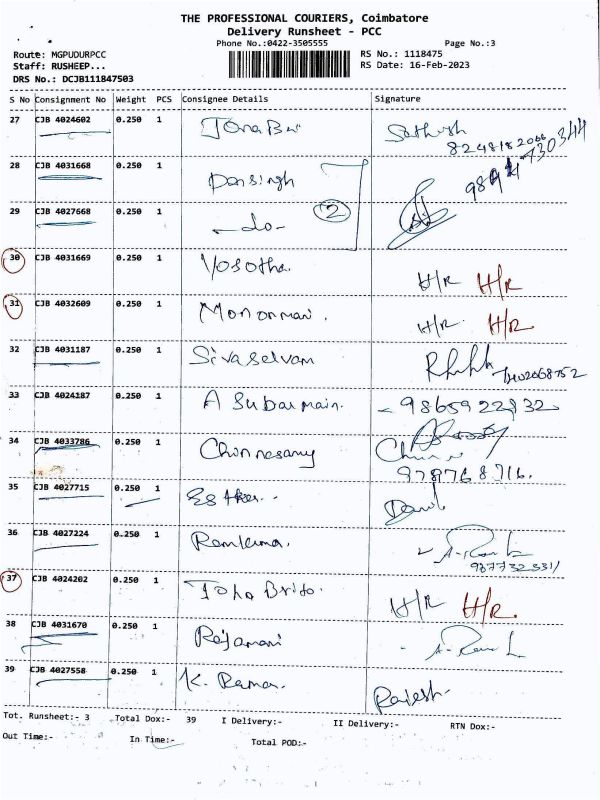 THE PROFESSIONAL COURIERS, Coimbatore
Delivery Runsheet - PCC
Phone No.:0422-3505555 Page No.:3
Route: MGPUDURPCC RS No.: 1118475
Staff: RUSHEEP... RS Date: 16-Feb-2023
DRS No.: DCJB111847503
S No Consignment No Weight PCS Consignee Details Signature
27 CJB 4024602 0.250 1 Sathish
28 CJB 4031668 0.250 1 Dansingh
29 CJB 4027668 0.250 1 -do- 2
30 CJB 4031669 0.250 1 Vosotha. H/R H/R
31 CJB 4032609 0.250 1 Monormani. H/R H/R
32 CJB 4031187 0.250 1 Sivaselvam
33 CJB 4024187 0.250 1 A Subarmain. - 9865922832
34 CJB 4033786 0.250 1 Chinnasamy
9787687716.
35 CJB 4027715 0.250 1 Esther..
36 CJB 4027224 0.250 1 Ramkuma.
37 CJB 4024202 0.250 1 John Brito. H/R H/R.
38 CJB 4031670 0.250 1 Rajamani
39 CJB 4027558 0.250 1 K. Raman. Rajesh.
Tot. Runsheet:- 3 Total Dox:- 39 I Delivery:- II Delivery:- RTN Dox:-
Out Time:- In Time:- Total POD:-